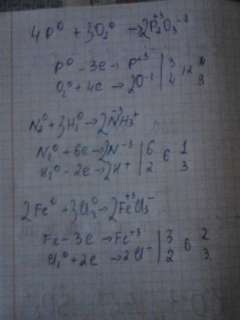 4P⁰ + 3O₂⁰ → 2P₂⁺³O₃⁻²
P⁰ - 3e → P⁺³ | 3 | 12
O₂⁰ + 4e → 2O⁻² | 4 | 3
N₂⁰ + 3H₂⁰ → 2N⁻³H₃⁺
N₂⁰ + 6e → 2N⁻³ | 6 | 6 | 1
H₂⁰ - 2e → 2H⁺ | 2 | 3
2Fe⁰ + 3Cl₂⁰ → 2Fe⁺³Cl₃⁻
Fe - 3e → Fe⁺³ | 3 | 6 | 2
Cl₂⁰ + 2e → 2Cl⁻ | 2 | 3